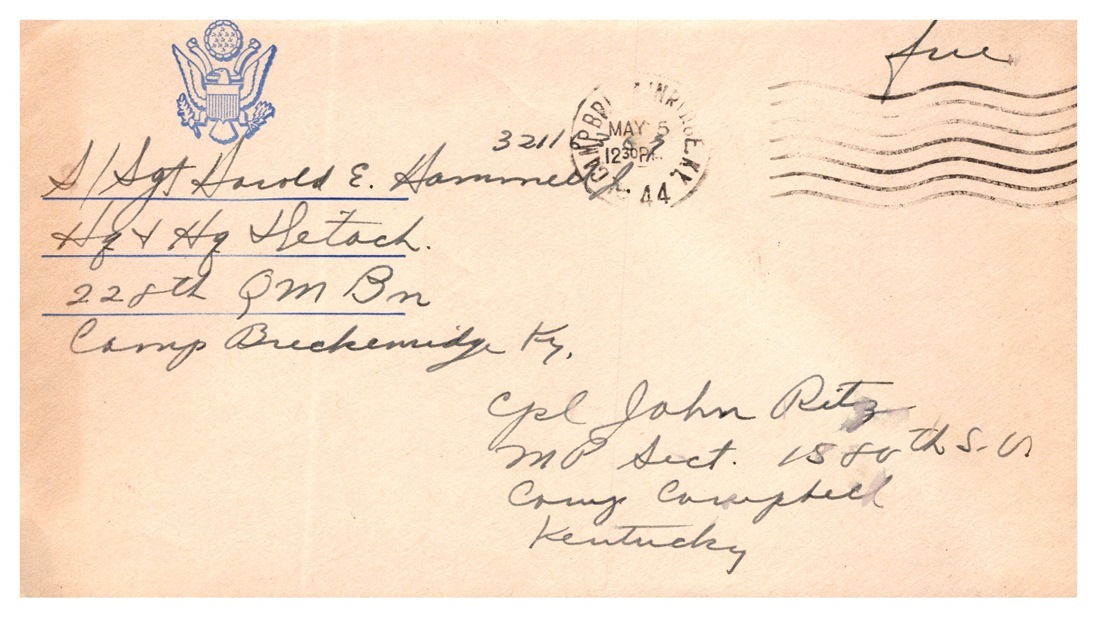 free
CAMP BRECKINRIDGE, KY.
MAY 5
12 30 PM
44
S/Sgt Harold E. Hammell Jr.
Hq & Hq Detach.
228th QM Bn
Camp Breckenridge Ky.
Cpl John Ritz
MP Sect. 1580th S. U.
Camp Campbell
Kentucky